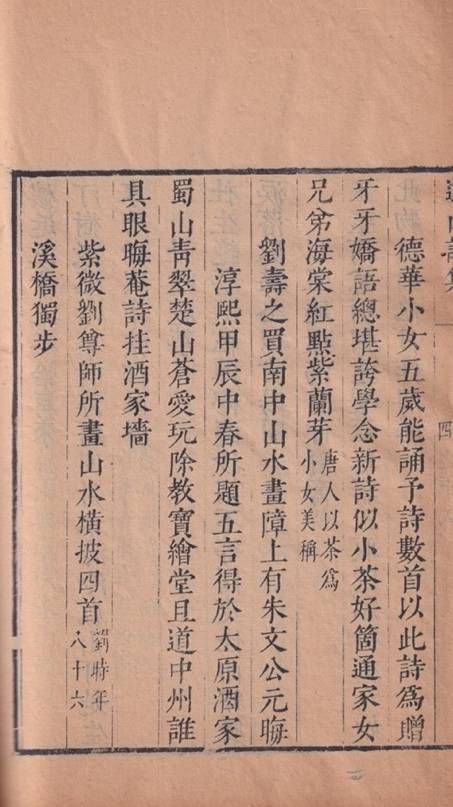 四
德華小女五歲能誦予詩數首以此詩爲贈
牙牙嬌語總堪誇學念新詩似小茶好箇通家女
兄弟海棠紅點紫蘭芽唐人以茶爲
小女美稱
劉壽之買南中山水畫障上有朱文公元晦
淳熙甲辰中春所題五言得於太原酒家
蜀山青翠楚山蒼愛玩除教寶繪堂且道中州誰
具眼晦菴詩挂酒家墻
紫微劉尊師所畫山水橫披四首劉時年
八十六
溪橋獨步